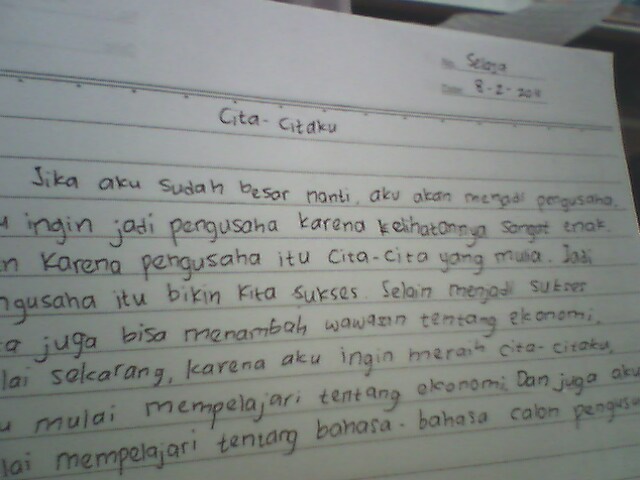 No. Selasa
Date 8-2-2011
Cita-Citaku
Jika aku sudah besar nanti, aku akan menjadi pengusaha.
u ingin jadi pengusaha karena kelihatannya sangat enak.
n karena pengusaha itu cita-cita yang mulia. Jadi
ngusaha itu bikin kita sukses. Selain menjadi sukses
a juga bisa menambah wawasan tentang ekonomi.
lai sekarang, karena aku ingin meraih cita-citaku,
u mulai mempelajari tentang ekonomi. Dan juga aku
lai mempelajari tentang bahasa-bahasa calon pengusa